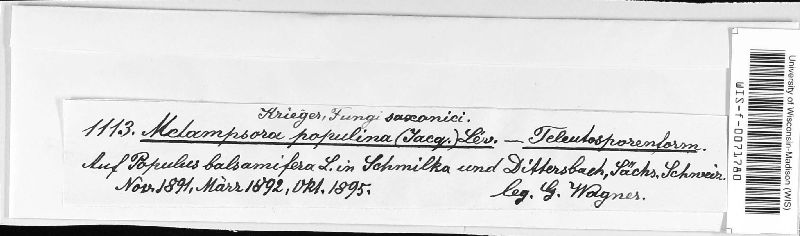 Krieger, Fungi saxonici.
1113. Melampsora populina (Jacq.) Lév. — Teleutosporenform.
Auf Populus balsamifera L. in Schmilka und Dittersbach, Sächs. Schweiz.
Nov. 1891, März 1892, Okt. 1895. leg. G. Wagner.
University of Wisconsin-Madison (WIS)
WIS-f-0071780